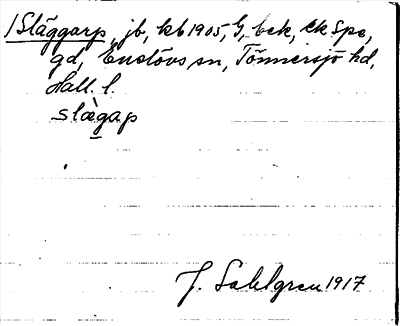 /Släggarp, jb, kb 1905, G, bek, ek Spe,
gd, Enslövs sn, Tönnersjö hd,
Hall. l.
slæ̀gap
J. Sahlgren 1917